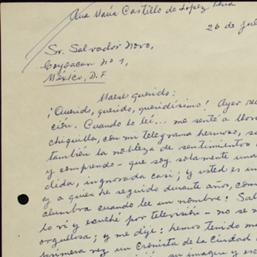 Ana María Castillo de López
26 de Jul
Sr. Salvador Novo,
Coyoacan No 1,
México, D.F.
Maese querido:
¡Querido, querido, queridísimo! Ayer
ción. Cuando lo leí... me senté a llora
chiquilla, con mi telegrama hermoso,
también la nobleza de sentimientos
y comprendo - que soy solamente una
dida, ignorada casi; y usted es un
y a quien he seguido durante años, com
alumbra cuando lee un nombre! Sal
lo vi y escuché por televisión - no se
orgullosa; y me dije: hemos tenido
primera vez un Cronista de la Ciudad
su imagen